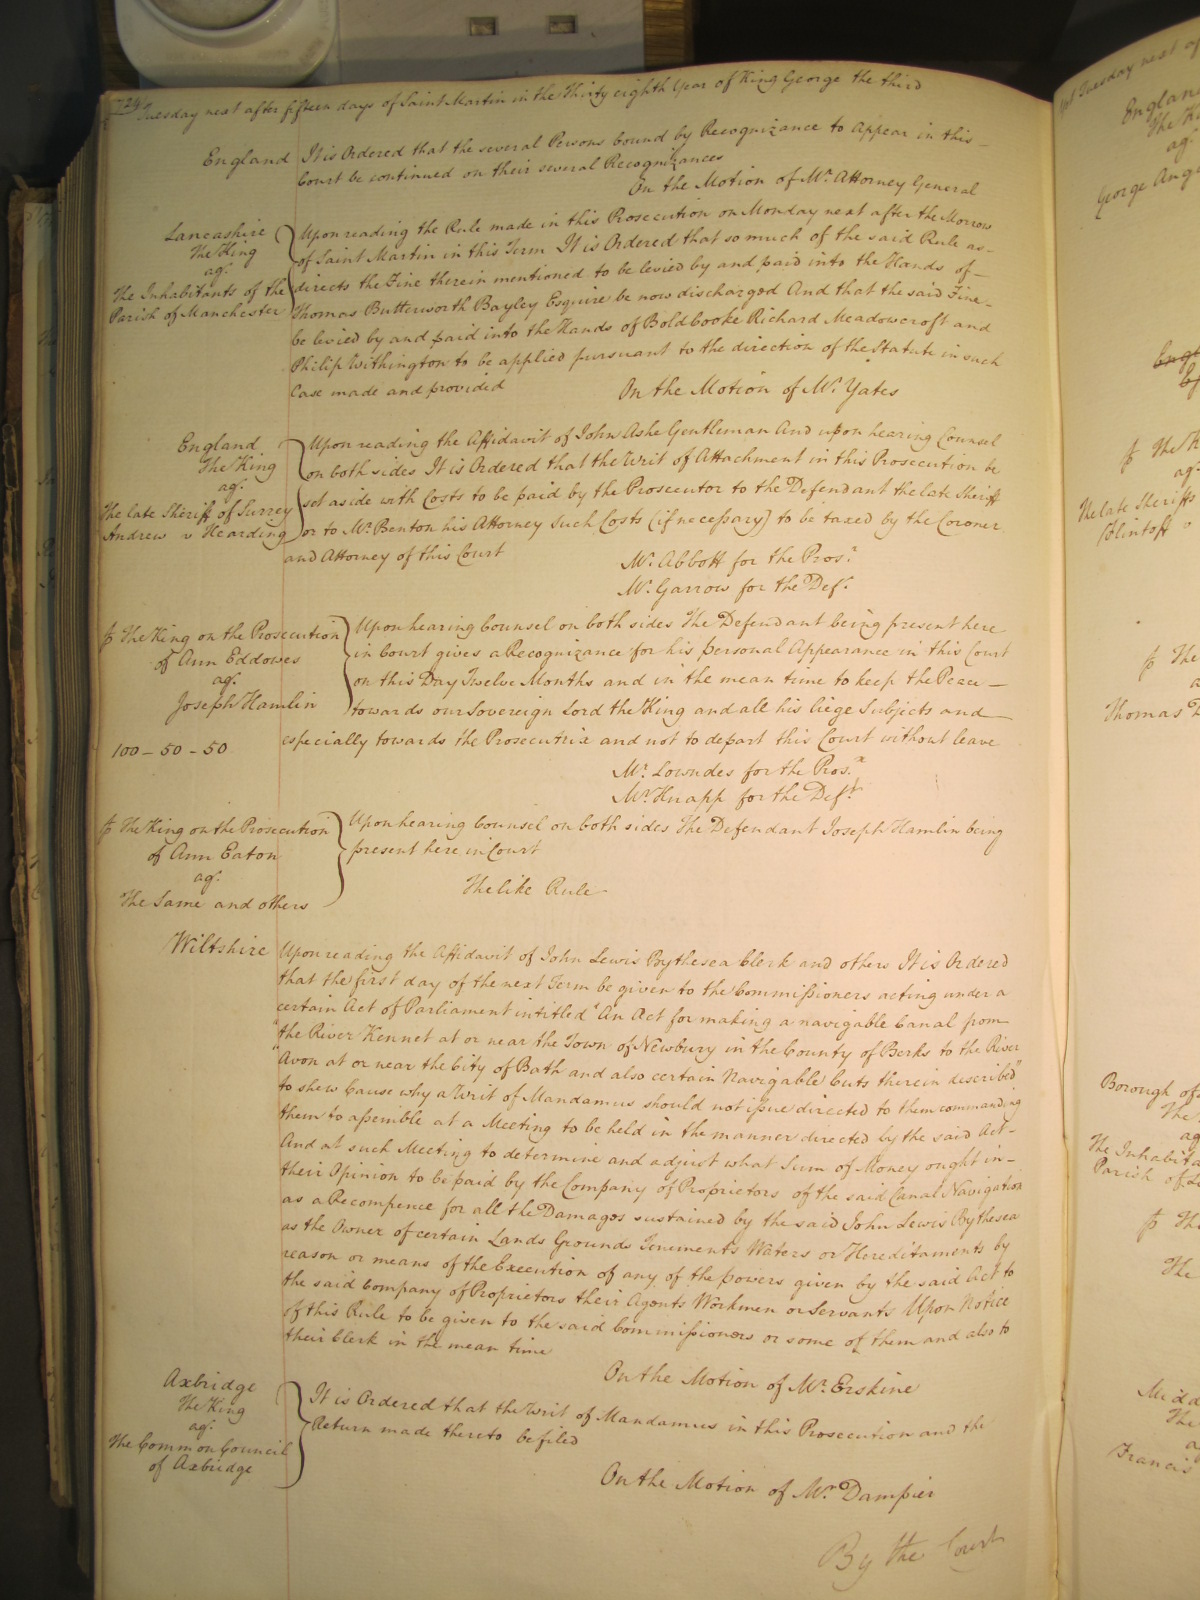 724
Tuesday next after fifteen days of Saint Martin in the Thirty eighth Year of King George the third
England It is Ordered that the several Persons bound by Recognizance to Appear in this
Court be continued on their several Recognizances
On the Motion of Mr. Attorney General
Lancashire
The King
agt.
The Inhabitants of the
Parish of Manchester
Upon reading the Rule made in this Prosecution on Monday next after the Morrow
of Saint Martin in this Term It is Ordered that so much of the said Rule as
directs the Fine therein mentioned to be levied by and paid into the Hands of
Thomas Butterworth Bayley Esquire be now discharged And that the said Fine
be levied by and paid into the Hands of Bold Cooke Richard Meadowcroft and
Philip Withington to be applied pursuant to the direction of the Statute in such
Case made and provided
On the Motion of Mr. Yates
England
The King
agt.
The late Sheriff of Surrey
Andrew v Hearding
Upon reading the Affidavit of John Ashe Gentleman And upon hearing Counsel
on both sides It is Ordered that the Writ of Attachment in this Prosecution be
set aside with Costs to be paid by the Prosecutor to the Defendant the late Sheriff
or to Mr. Benton his Attorney such Costs (if necessary) to be taxed by the Coroner
and Attorney of this Court
Mr. Abbott for the Pros.r
Mr. Garrow for the Def.t
The King on the Prosecution
of Ann Eddowes
agt.
Joseph Hamlin
100 - 50 - 50
Upon hearing Counsel on both sides The Defendant being present here
in Court gives a Recognizance for his personal Appearance in this Court
on this Day Twelve Months and in the mean time to keep the Peace
towards our Sovereign Lord the King and all his liege Subjects and
especially towards the Prosecutrix and not to depart this Court without leave
Mr. Lowndes for the Pros.x
Mr. Knapp for the Def.t
The King on the Prosecution
of Ann Eaton
agt.
The Same and others
Upon hearing Counsel on both sides The Defendant Joseph Hamlin being
present here in Court
The like Rule
Wiltshire Upon reading the Affidavit of John Lewis Bythesea Clerk and others It is Ordered
that the first day of the next Term be given to the Commissioners acting under a
certain Act of Parliament intitled "An Act for making a navigable Canal from
"the River Kennet at or near the Town of Newbury in the County of Berks to the River
"Avon at or near the City of Bath and also certain Navigable Cuts therein described"
to shew Cause why a Writ of Mandamus should not issue directed to them commanding
them to assemble at a Meeting to be held in the manner directed by the said Act
And at such Meeting to determine and adjust what Sum of Money ought in
their Opinion to be paid by the Company of Proprietors of the said Canal Navigation
as a Recompence for all the Damages sustained by the said John Lewis Bythesea
as the Owner of certain Lands Grounds Tenements Waters or Hereditaments by
reason or means of the Execution of any of the powers given by the said Act to
the said Company of Proprietors their Agents Workmen or Servants Upon Notice
of this Rule to be given to the said Commissioners or some of them and also to
their Clerk in the mean time
On the Motion of Mr. Erskine
Axbridge
The King
agt.
The Common Council
of Axbridge
It is Ordered that the Writ of Mandamus in this Prosecution and the
Return made thereto be filed
On the Motion of Mr. Dampier
By the Court
Tuesday next
England
agt.
George
The late Sheriff
Clintoff v
The
Thomas
Borough of
The
The Inhabita
Parish of
The
Francis